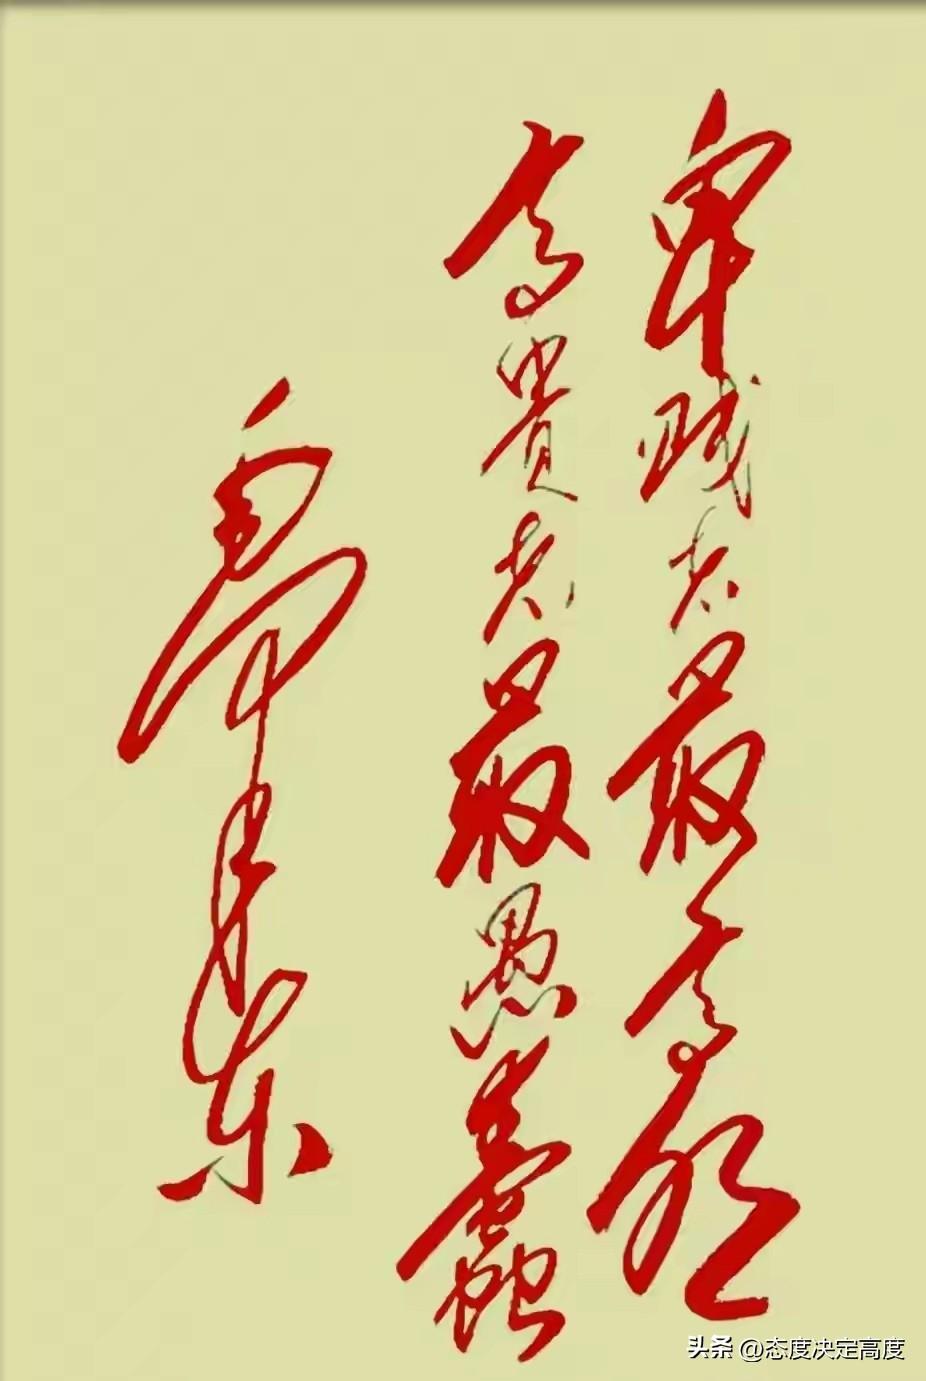 卑贱者最高明
高贵者最愚蠢
毛泽东
头条 @态度决定高度